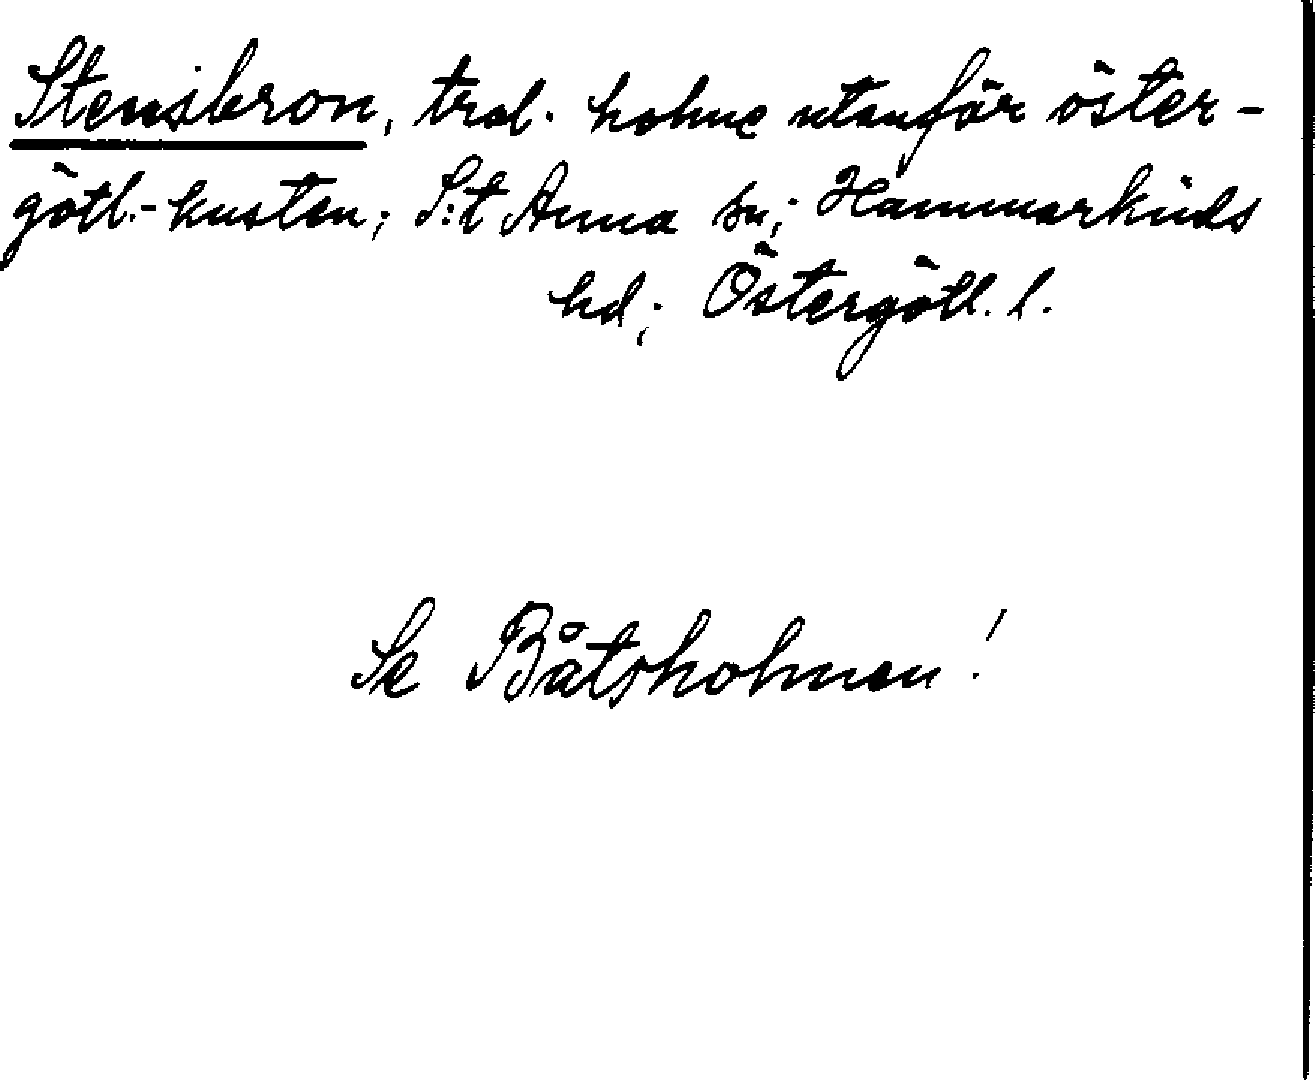 Stensbron, trol. holme utanför öster-
götl.-kusten; S:t Anna sn; Hammarkinds
hd; Östergötl. l.
Se Båtsholmen!